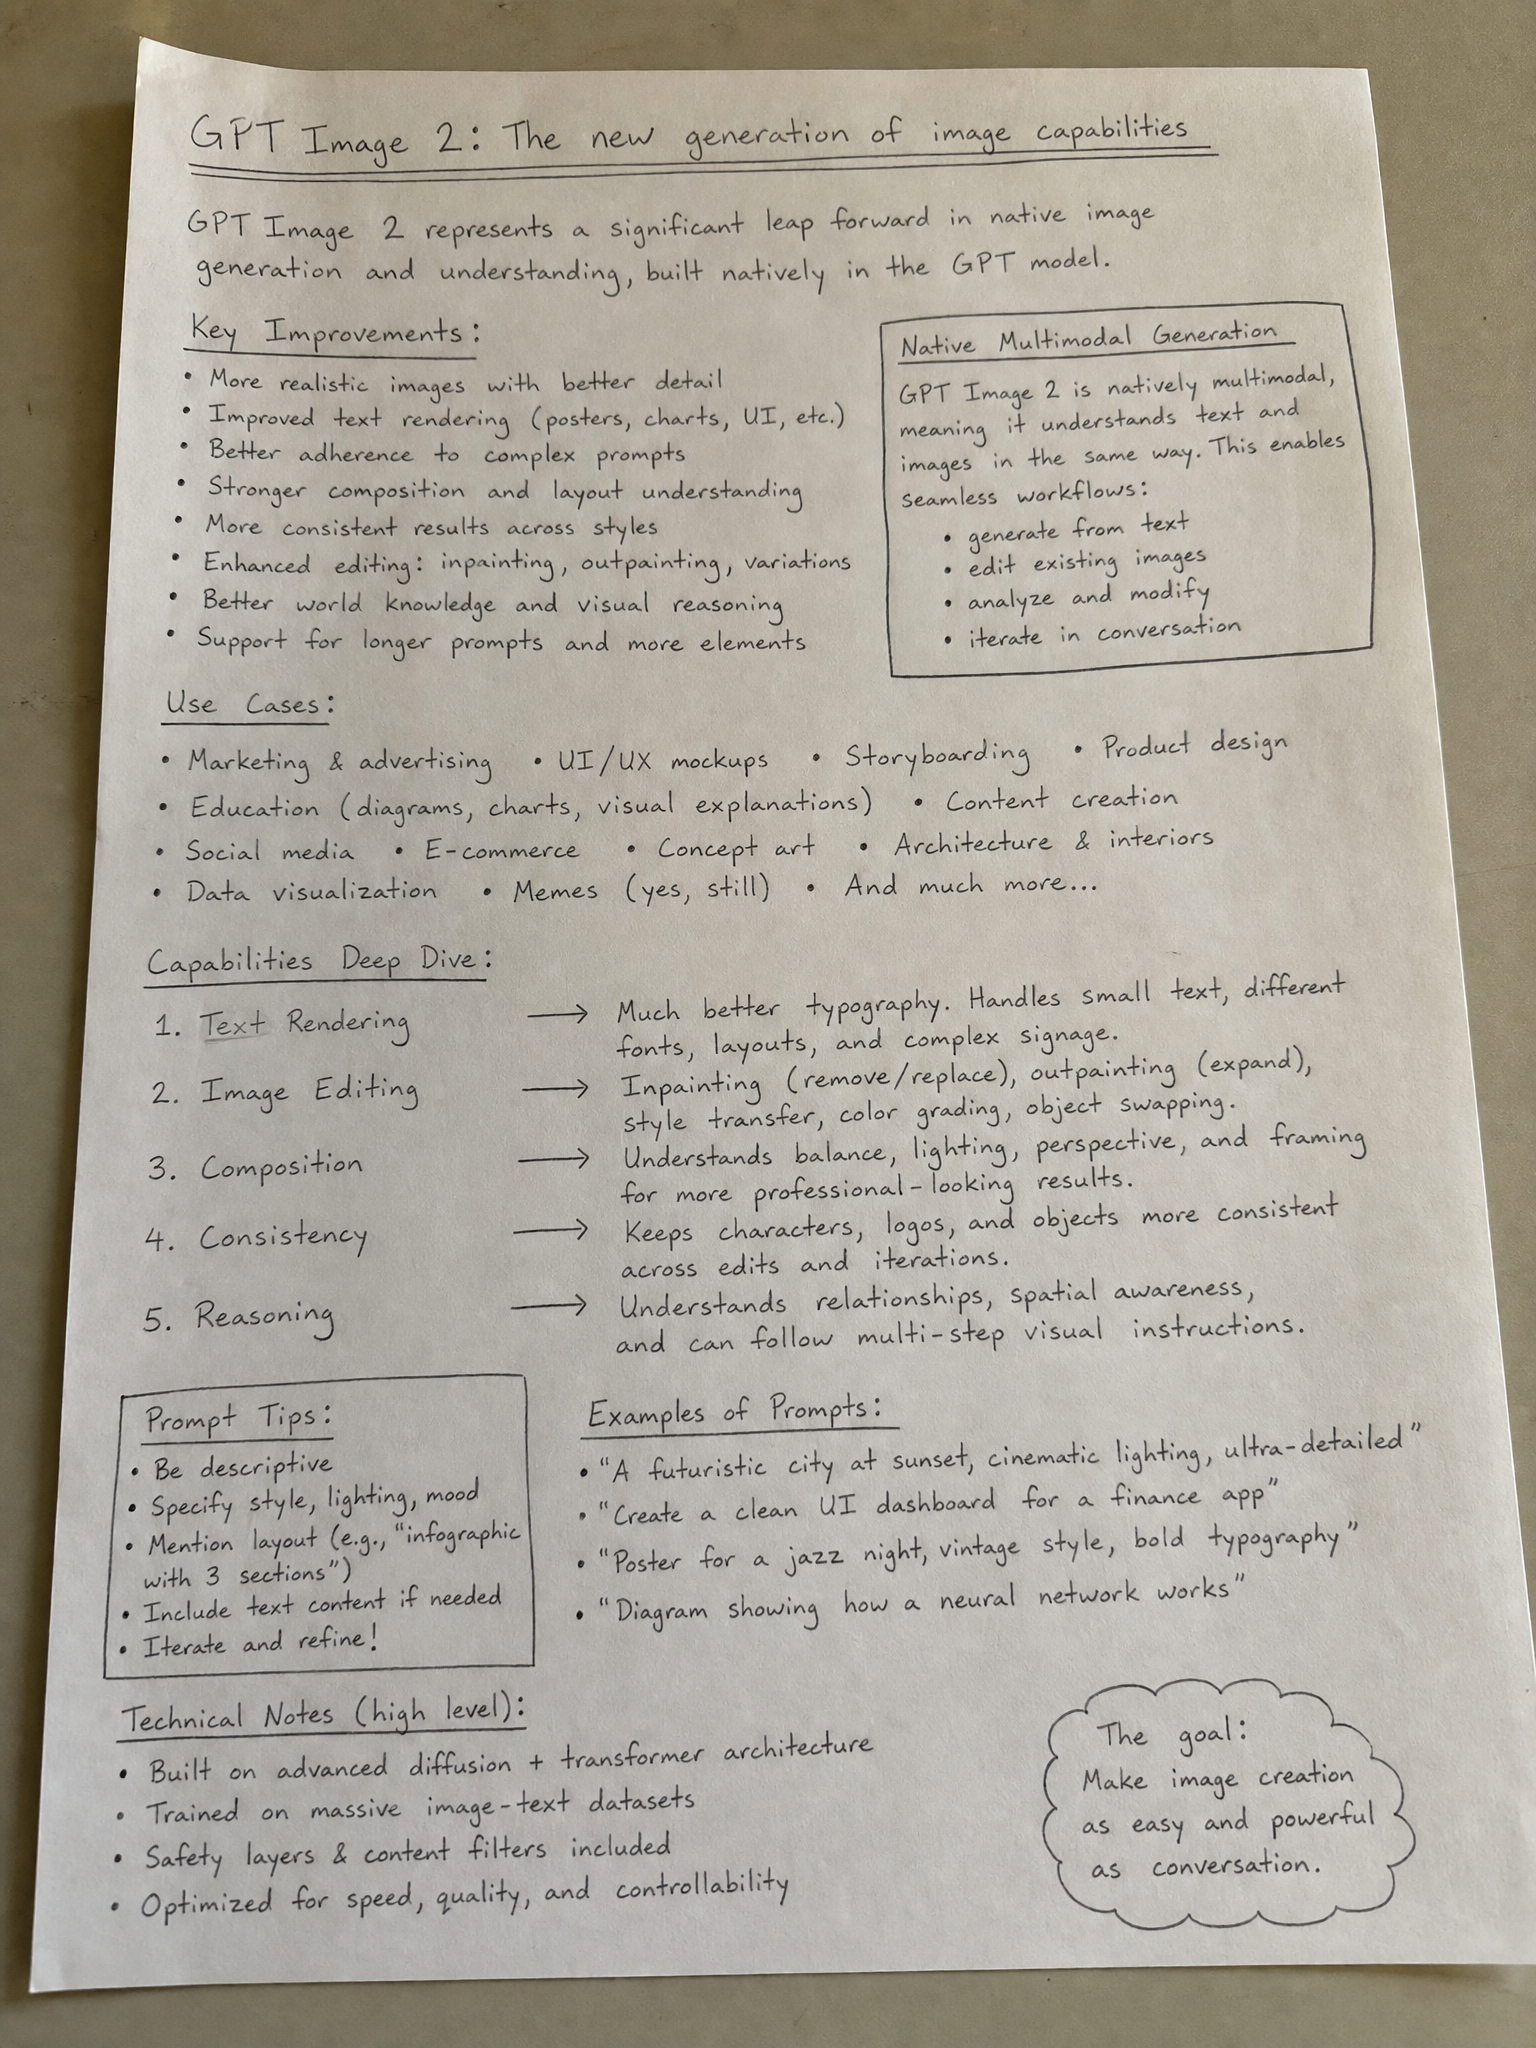 GPT Image 2: The new generation of image capabilities
GPT Image 2 represents a significant leap forward in native image
generation and understanding, built natively in the GPT model.
Key Improvements:
• More realistic images with better detail
• Improved text rendering (posters, charts, UI, etc.)
• Better adherence to complex prompts
• Stronger composition and layout understanding
• More consistent results across styles
• Enhanced editing: inpainting, outpainting, variations
• Better world knowledge and visual reasoning
• Support for longer prompts and more elements
Native Multimodal Generation
GPT Image 2 is natively multimodal,
meaning it understands text and
images in the same way. This enables
seamless workflows:
• generate from text
• edit existing images
• analyze and modify
• iterate in conversation
Use Cases:
• Marketing & advertising • UI/UX mockups • Storyboarding • Product design
• Education (diagrams, charts, visual explanations) • Content creation
• Social media • E-commerce • Concept art • Architecture & interiors
• Data visualization • Memes (yes, still) • And much more...
Capabilities Deep Dive:
1. Text Rendering → Much better typography. Handles small text, different
fonts, layouts, and complex signage.
2. Image Editing → Inpainting (remove/replace), outpainting (expand),
style transfer, color grading, object swapping.
3. Composition → Understands balance, lighting, perspective, and framing
for more professional-looking results.
4. Consistency → Keeps characters, logos, and objects more consistent
across edits and iterations.
5. Reasoning → Understands relationships, spatial awareness,
and can follow multi-step visual instructions.
Prompt Tips:
• Be descriptive
• Specify style, lighting, mood
• Mention layout (e.g., "infographic
with 3 sections")
• Include text content if needed
• Iterate and refine!
Examples of Prompts:
• "A futuristic city at sunset, cinematic lighting, ultra-detailed"
• "Create a clean UI dashboard for a finance app"
• "Poster for a jazz night, vintage style, bold typography"
• "Diagram showing how a neural network works"
Technical Notes (high level):
• Built on advanced diffusion + transformer architecture
• Trained on massive image-text datasets
• Safety layers & content filters included
• Optimized for speed, quality, and controllability
The goal:
Make image creation
as easy and powerful
as conversation.